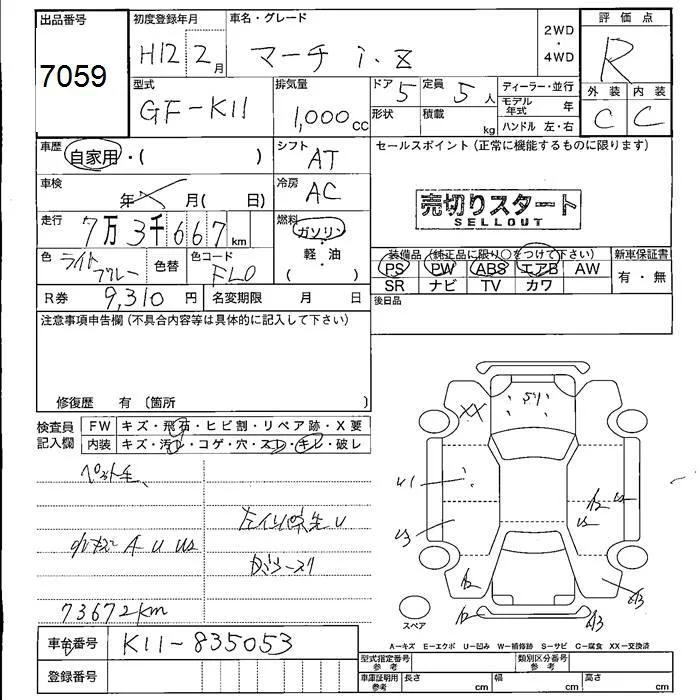 出品番号 初度登録年月 車名・グレード 2WD ・ 4WD 評価点
7059 H12 2月 マーチ i・z R
型式 排気量 ドア 5 定員 5人 ディーラー・並行 外装 内装
GF-K11 1,000cc 形状 積載 kg モデル年式 年 C C
ハンドル 左・右
車歴 自家用・( ) シフト AT セールスポイント (正常に機能するものに限ります)
車検 年 月( 日) 冷房 AC
売切りスタート
SELLOUT
走行 7万3千667km 燃料 ガソリン
軽・油
( )
色 ライトブルー 色替 色コード FL0
装備品 (純正品に限り○をつけて下さい) 新車保証書
PS PW ABS エアB AW 有・無
SR ナビ TV カワ
R券 9,310円 名変期限 月 日 後日品
注意事項申告欄 (不具合内容等は具体的に記入して下さい)
修復歴 有 〔箇所 〕
検査員記入欄 FW キズ・飛石・ヒビ割・リペア跡・X要
内装 キズ・汚れ・コゲ・穴・スレ・キレ・破レ
A U U2
73672km
XX
U1
U3
A2
スペア
車台番号 K11-835053
A−キズ E−エクボ U−凹み W−補修跡 S−サビ C−腐食 XX−交換済
登録番号
型式指定番号 参考 類別区分番号 参考
車庫証明用 参考 長さ cm 幅 cm 高さ cm